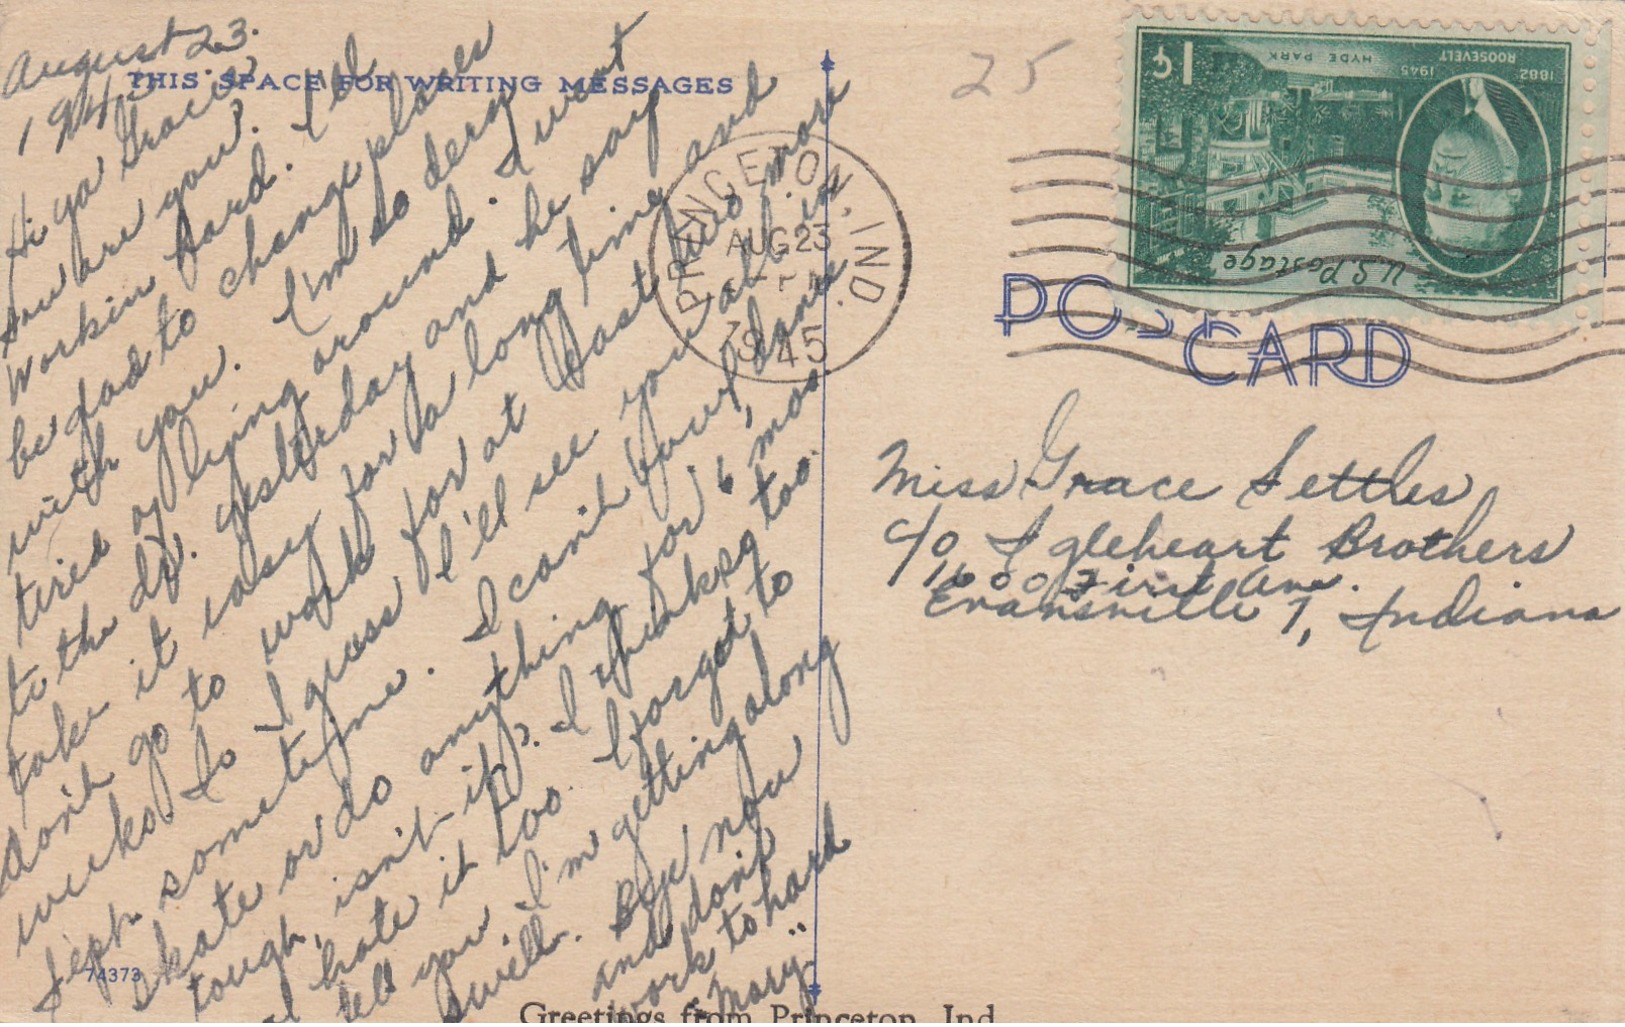 August 23.
1945
THIS SPACE FOR WRITING MESSAGES
Hi ya Gracie
How are you?
Workin hard. I'd
be glad to change places
with you. I'm so dern
tired of lying around. I went
to the dr. yesterday and he say
take it easy for a long time and
don't go to work for at least two more
weeks. So I guess I'll see you all in
Sept. sometime. I can't bowl, dance
skate or do anything for 6 mos.
tough, isn't it? I thinks so too.
I hate it too. I forgot to
tell you I'm getting along
swell. Bye now
and don't
work to hard
"Mary"
74373
Greetings from Princeton, Ind.
25
PRINCETON, IND.
AUG 23
1945
1¢
HYDE PARK
1882 1945
ROOSEVELT
U.S. Postage
POST CARD
Miss Grace Settles
c/o Igleheart Brothers
1600 First Ave.
Evansville 7, Indiana